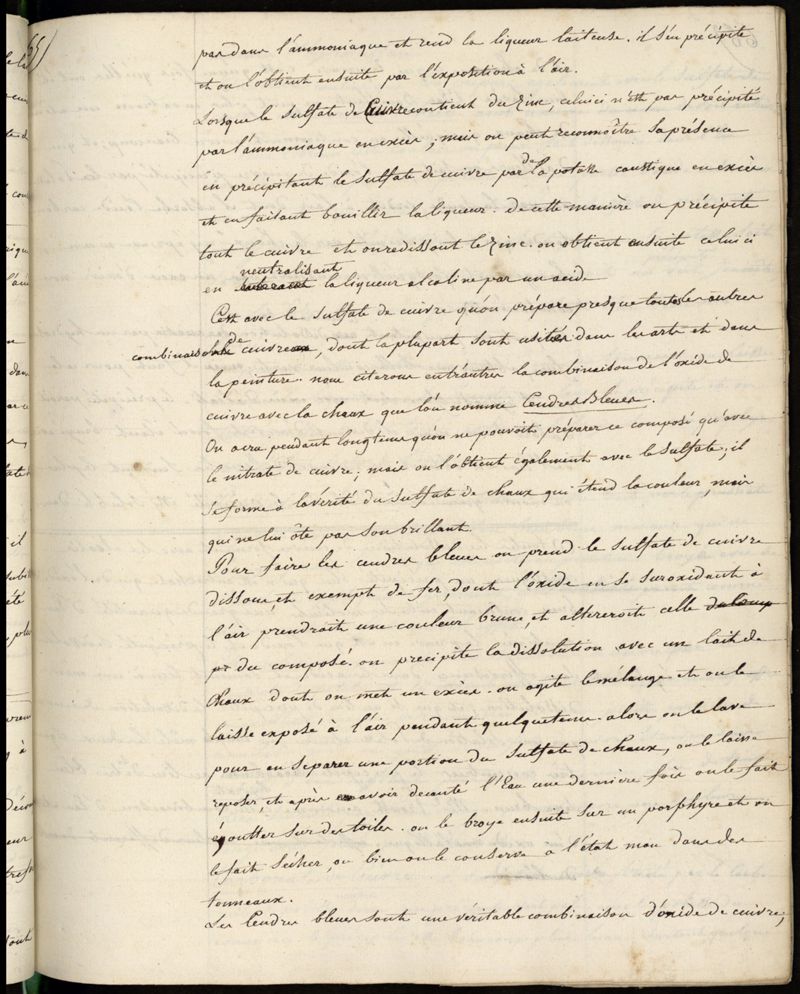 65)
pas dans l'ammoniaque et rend la liqueur laiteuse. il s'en précipite
et on l'obtient ensuite par l'exposition à l'air.
Lorsque le sulfate de Cuivre contient du Zinc, celui ci n'est pas précipité
par l'ammoniaque en excès; mais on peut reconnoître sa présence
en précipitant le sulfate de cuivre par de la potasse caustique en excès
et en faisant bouillir la liqueur. de cette manière on précipite
tout le cuivre et on redissout le Zinc. on obtient ensuite celui ci
neutralisant
en la liqueur alcaline par un acide
C'est avec le sulfate de cuivre qu'on prépare presque toutes les autres
combinaisons de cuivre, dont la plupart sont usitées dans les arts et dans
la peinture. nous citerons entr'autres la combinaison de l'oxide de
cuivre avec la chaux que l'on nomme Cendres Bleues.
On a cru pendant longtems qu'on ne pouvoit préparer ce composé qu'avec
le nitrate de cuivre; mais on l'obtient également avec le sulfate; il
se forme à la vérité du sulfate de chaux qui étend la couleur, mais
qui ne lui ôte pas son brillant.
Pour faire les cendres bleues on prend le sulfate de cuivre
dissous, et exempt de fer, dont l'oxide en se suroxidant à
l'air prendroit une couleur brune, et altereroit celle du comp
du composé. on precipite la dissolution avec un lait de
Chaux dont on met un excès. on agite le mélange et on le
laisse exposé à l'air pendant quelque tems. alors on le lave
pour en separer une portion du sulfate de chaux, on le laisse
reposer, et après avoir decanté l'Eau une dernière fois on le fait
égoutter sur des toiles. on le broye ensuite sur un porphyre et on
le fait sécher, ou bien on le conserve à l'état mou dans des
tonneaux.
Les Cendres bleues sont une véritable combinaison d'oxide de cuivre,